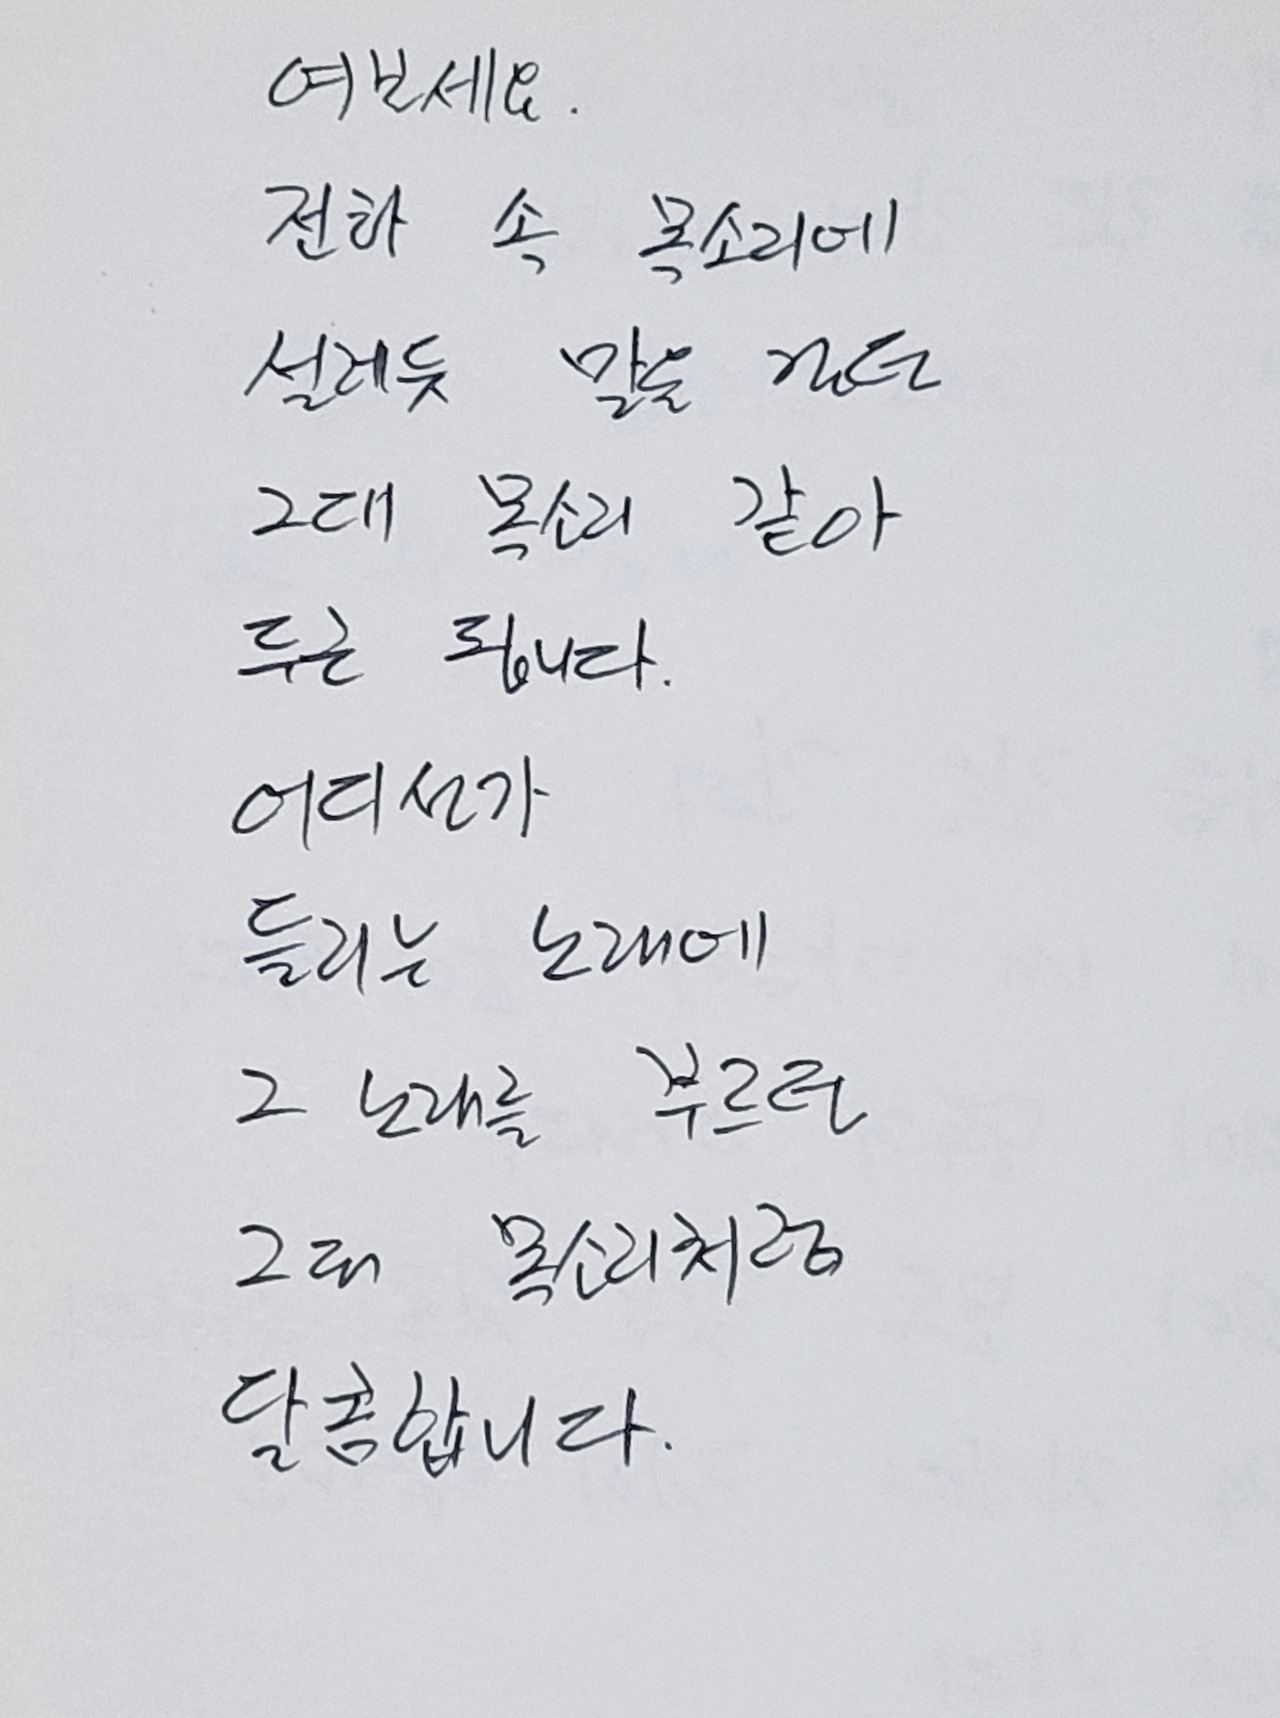 여보세요.
전화 속 목소리에
설레듯 말을 건던
그대 목소리 같아
두근 됩니다.
어디선가
들리는 노래에
그 노래를 부르던
그대 목소리처럼
달콤합니다.